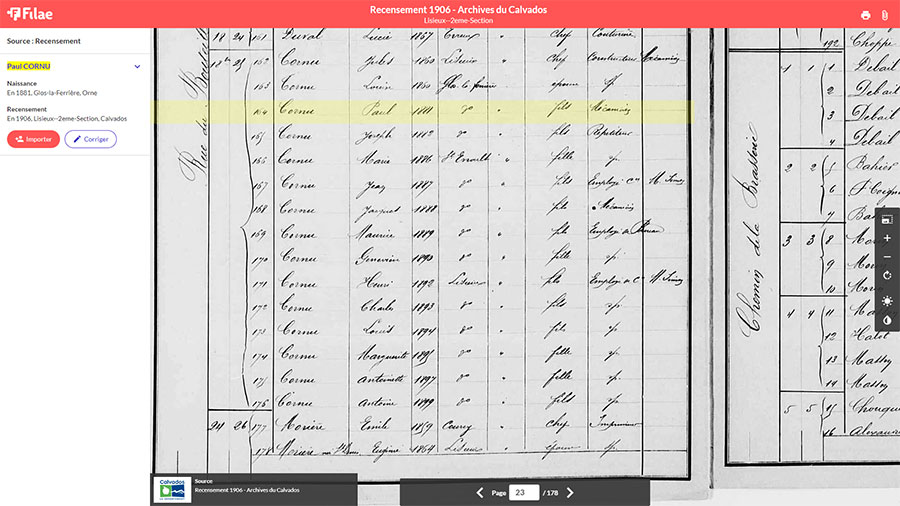 Filae
Recensement 1906 - Archives du Calvados
Lisieux--2eme-Section
Source : Recensement
Paul CORNU
Naissance
En 1881, Glos-la-Ferrière, Orne
Recensement
En 1906, Lisieux--2eme-Section, Calvados
Importer
Corriger
Rue du
18 24 161 Duval Lucie 1857 chef Couturière
162 Cornu Jules 1860 Lisieux chef Constructeur Mécanicien
163 Cornu Louise 1860 Glos la ferrière épouse sp
164 Cornu Paul 1881 do fils Mécanicien
165 Cornu Joseph 1882 do fils Répétiteur
166 Cornu Marie 1886 fille sp
167 Cornu Jean 1887 do fils Employé
168 Cornu Jacques 1888 do fils Mécanicien
169 Cornu Maurice 1889 do fils Employé de Bureau
170 Cornu Geneviève 1890 do fille sp
171 Cornu Henri 1892 Lisieux fils Employé de C
172 Cornu Charles 1893 do fils sp
173 Cornu Louis 1894 do fils sp
174 Cornu Marguerite 1895 do fille sp
175 Cornu Antoinette 1897 do fille sp
176 Cornu Antoine 1899 do fils sp
24 26 177 Morière Emile 1859 chef Imprimeur
178 Morière Eugénie 1864 Lisieux épouse sp
Chemin de la Brasserie
192 Choppe
1 1 1 Debail
2 Debail
3 Debail
4 Debail
2 2 5 Bahier
6
7
3 3 8
9
10
4 4 11
12 Halet
13 Massy
14 Massy
5 5 15
16
Calvados
Source
Recensement 1906 - Archives du Calvados
Page 23 / 178